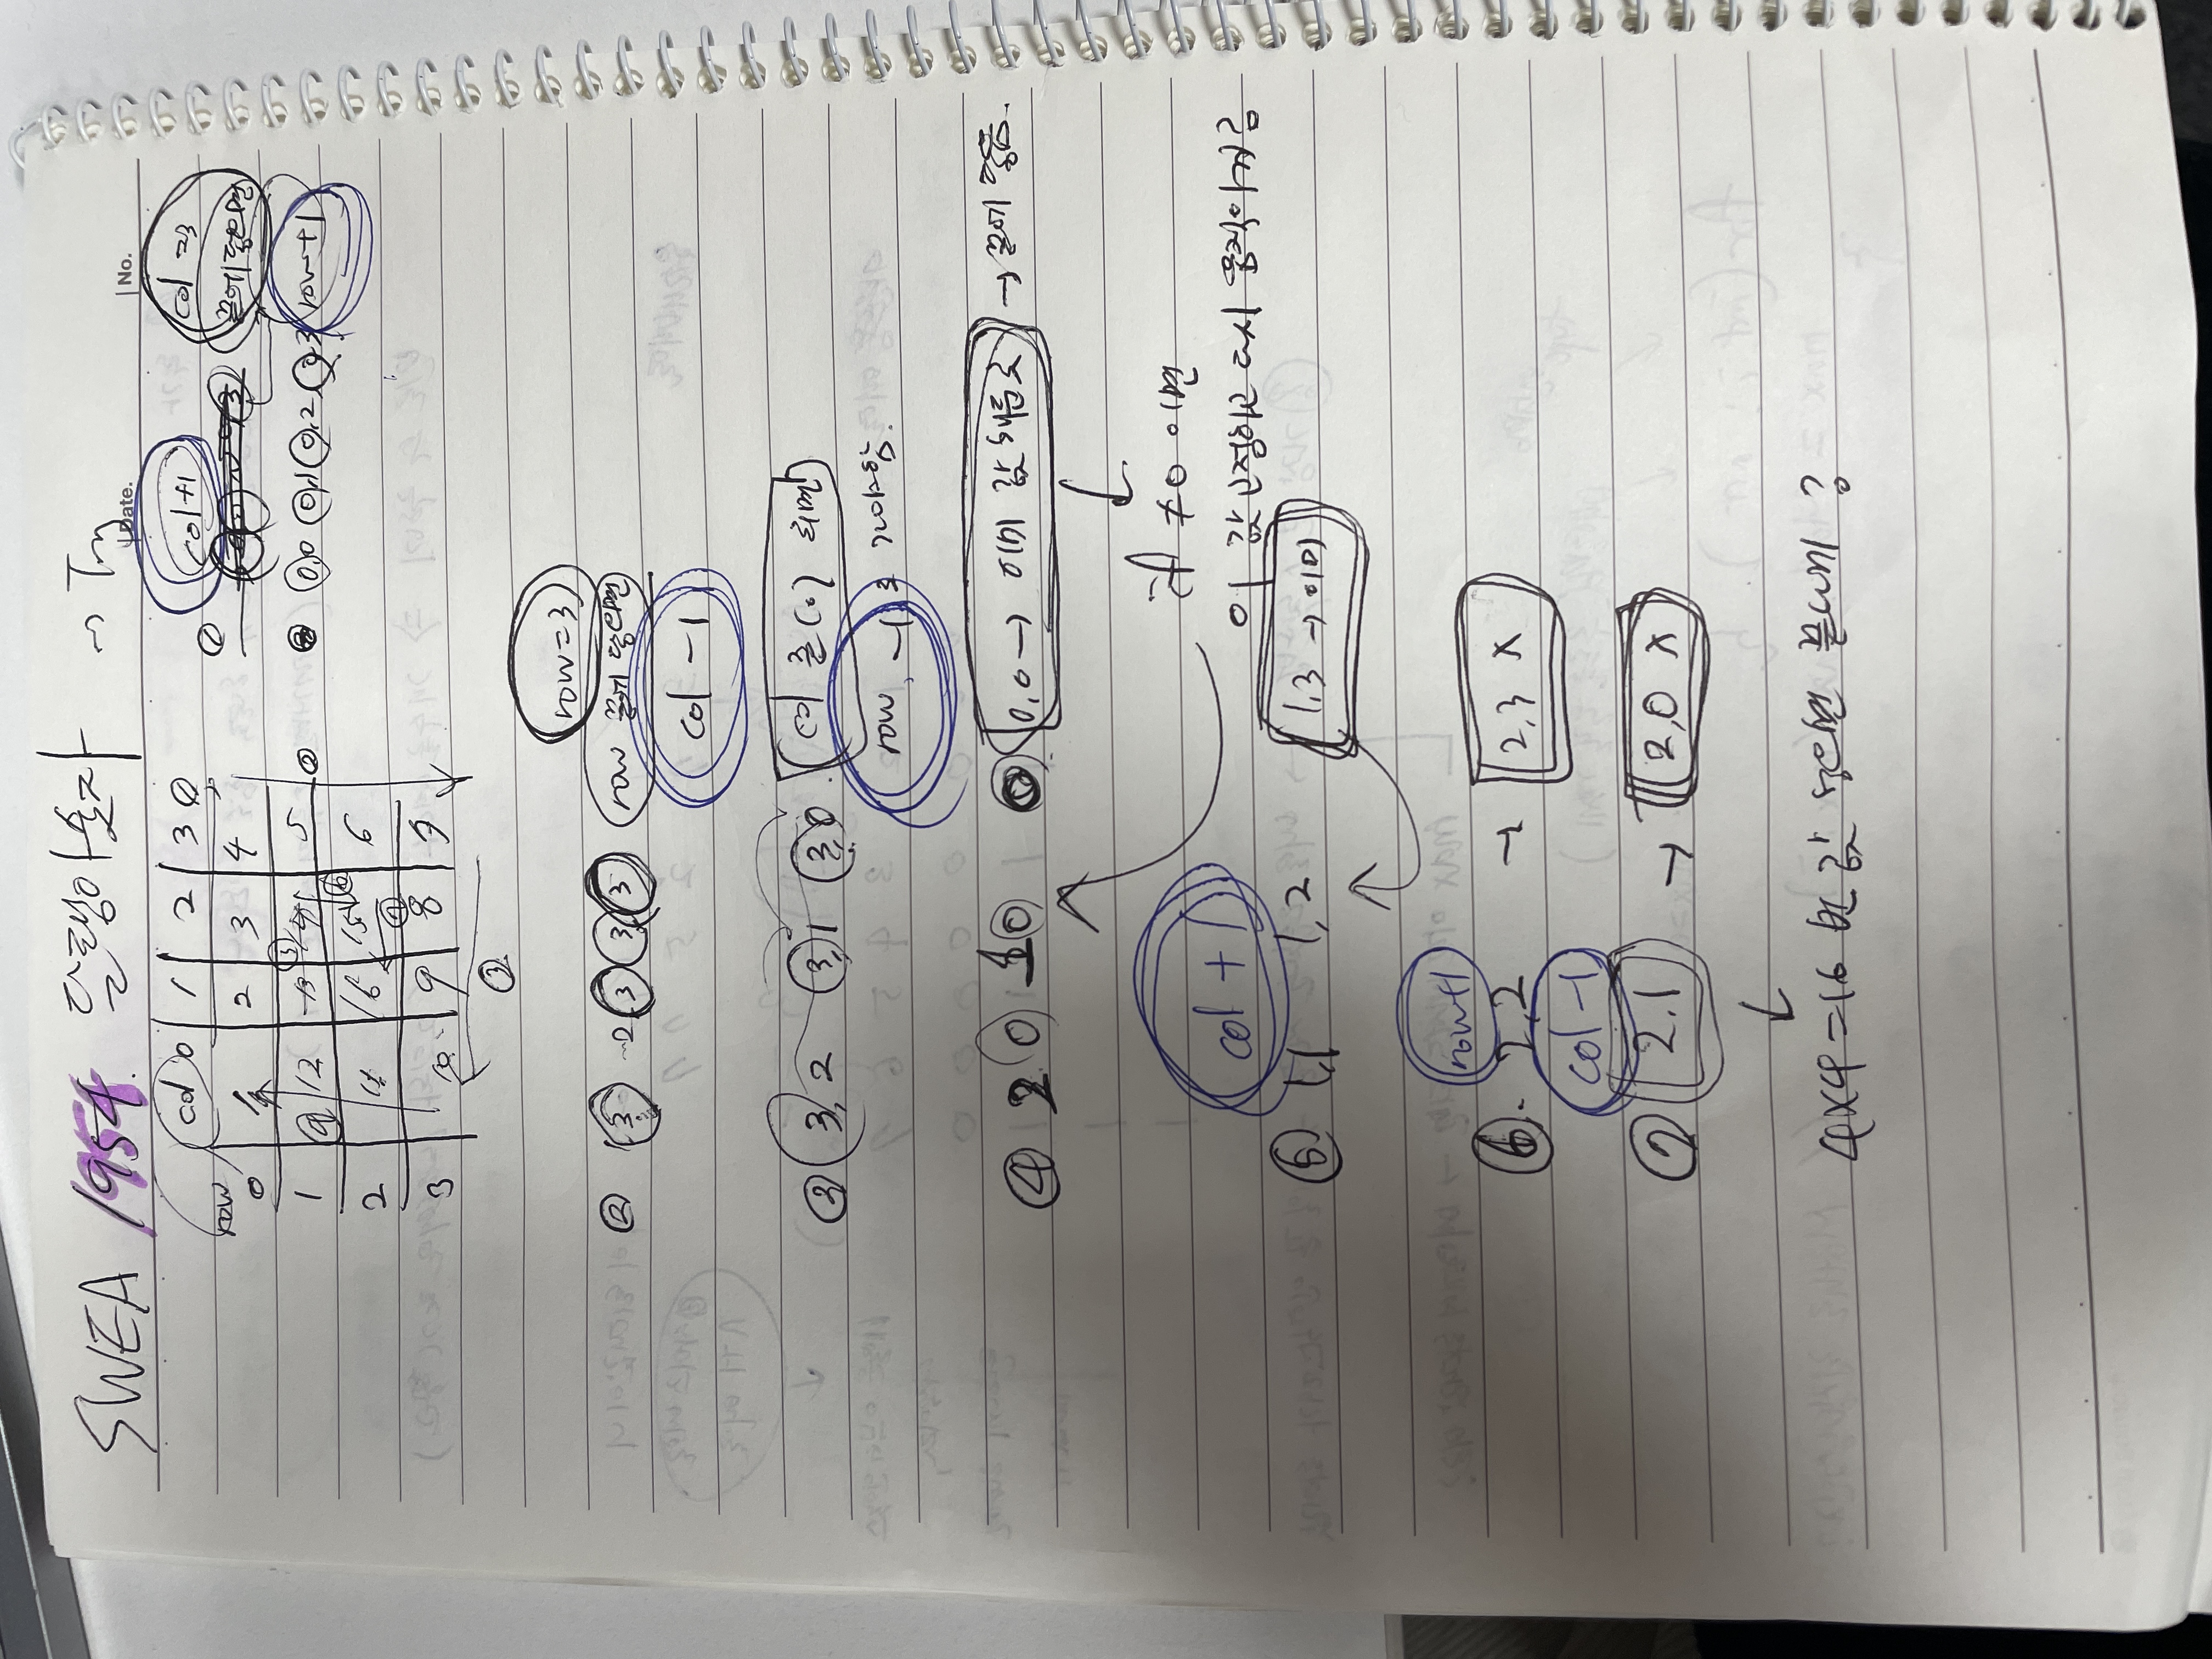 SWEA 1954. 달팽이 숫자 → Try
Date. No.
row col 0 1 2 3 ①
0 1 2 3 4
1 ④ 12 13 ⑤ 14 5 ②
2 11 16 15 ⑥ 6
⑦
3 10 9 8 7
③
① col+1 col=3
끝에 닿으면
0,0 0,1 0,2, 0,3 row+1
row=3
② 1,3 2,3 3,3 row 끝에 닿으면
col -1
③ 3,2 3,1 3,0. col 끝(0) 되면
row, -1로 가야함.
④ 2 0 1 0 0,0 → 이미 값 해둠 → 끝에 닿음.
if ≠0 이면
이 값 고정하고 다시 움직이게끔
col +1
⑤ 1,1 1,2 1,3 → 이미
row+1
⑥. 2,2 → 2,3 x
col -1
⑦ 2.1 → 2,0 x
4x4=16 번 값 넣으면 끝나게?